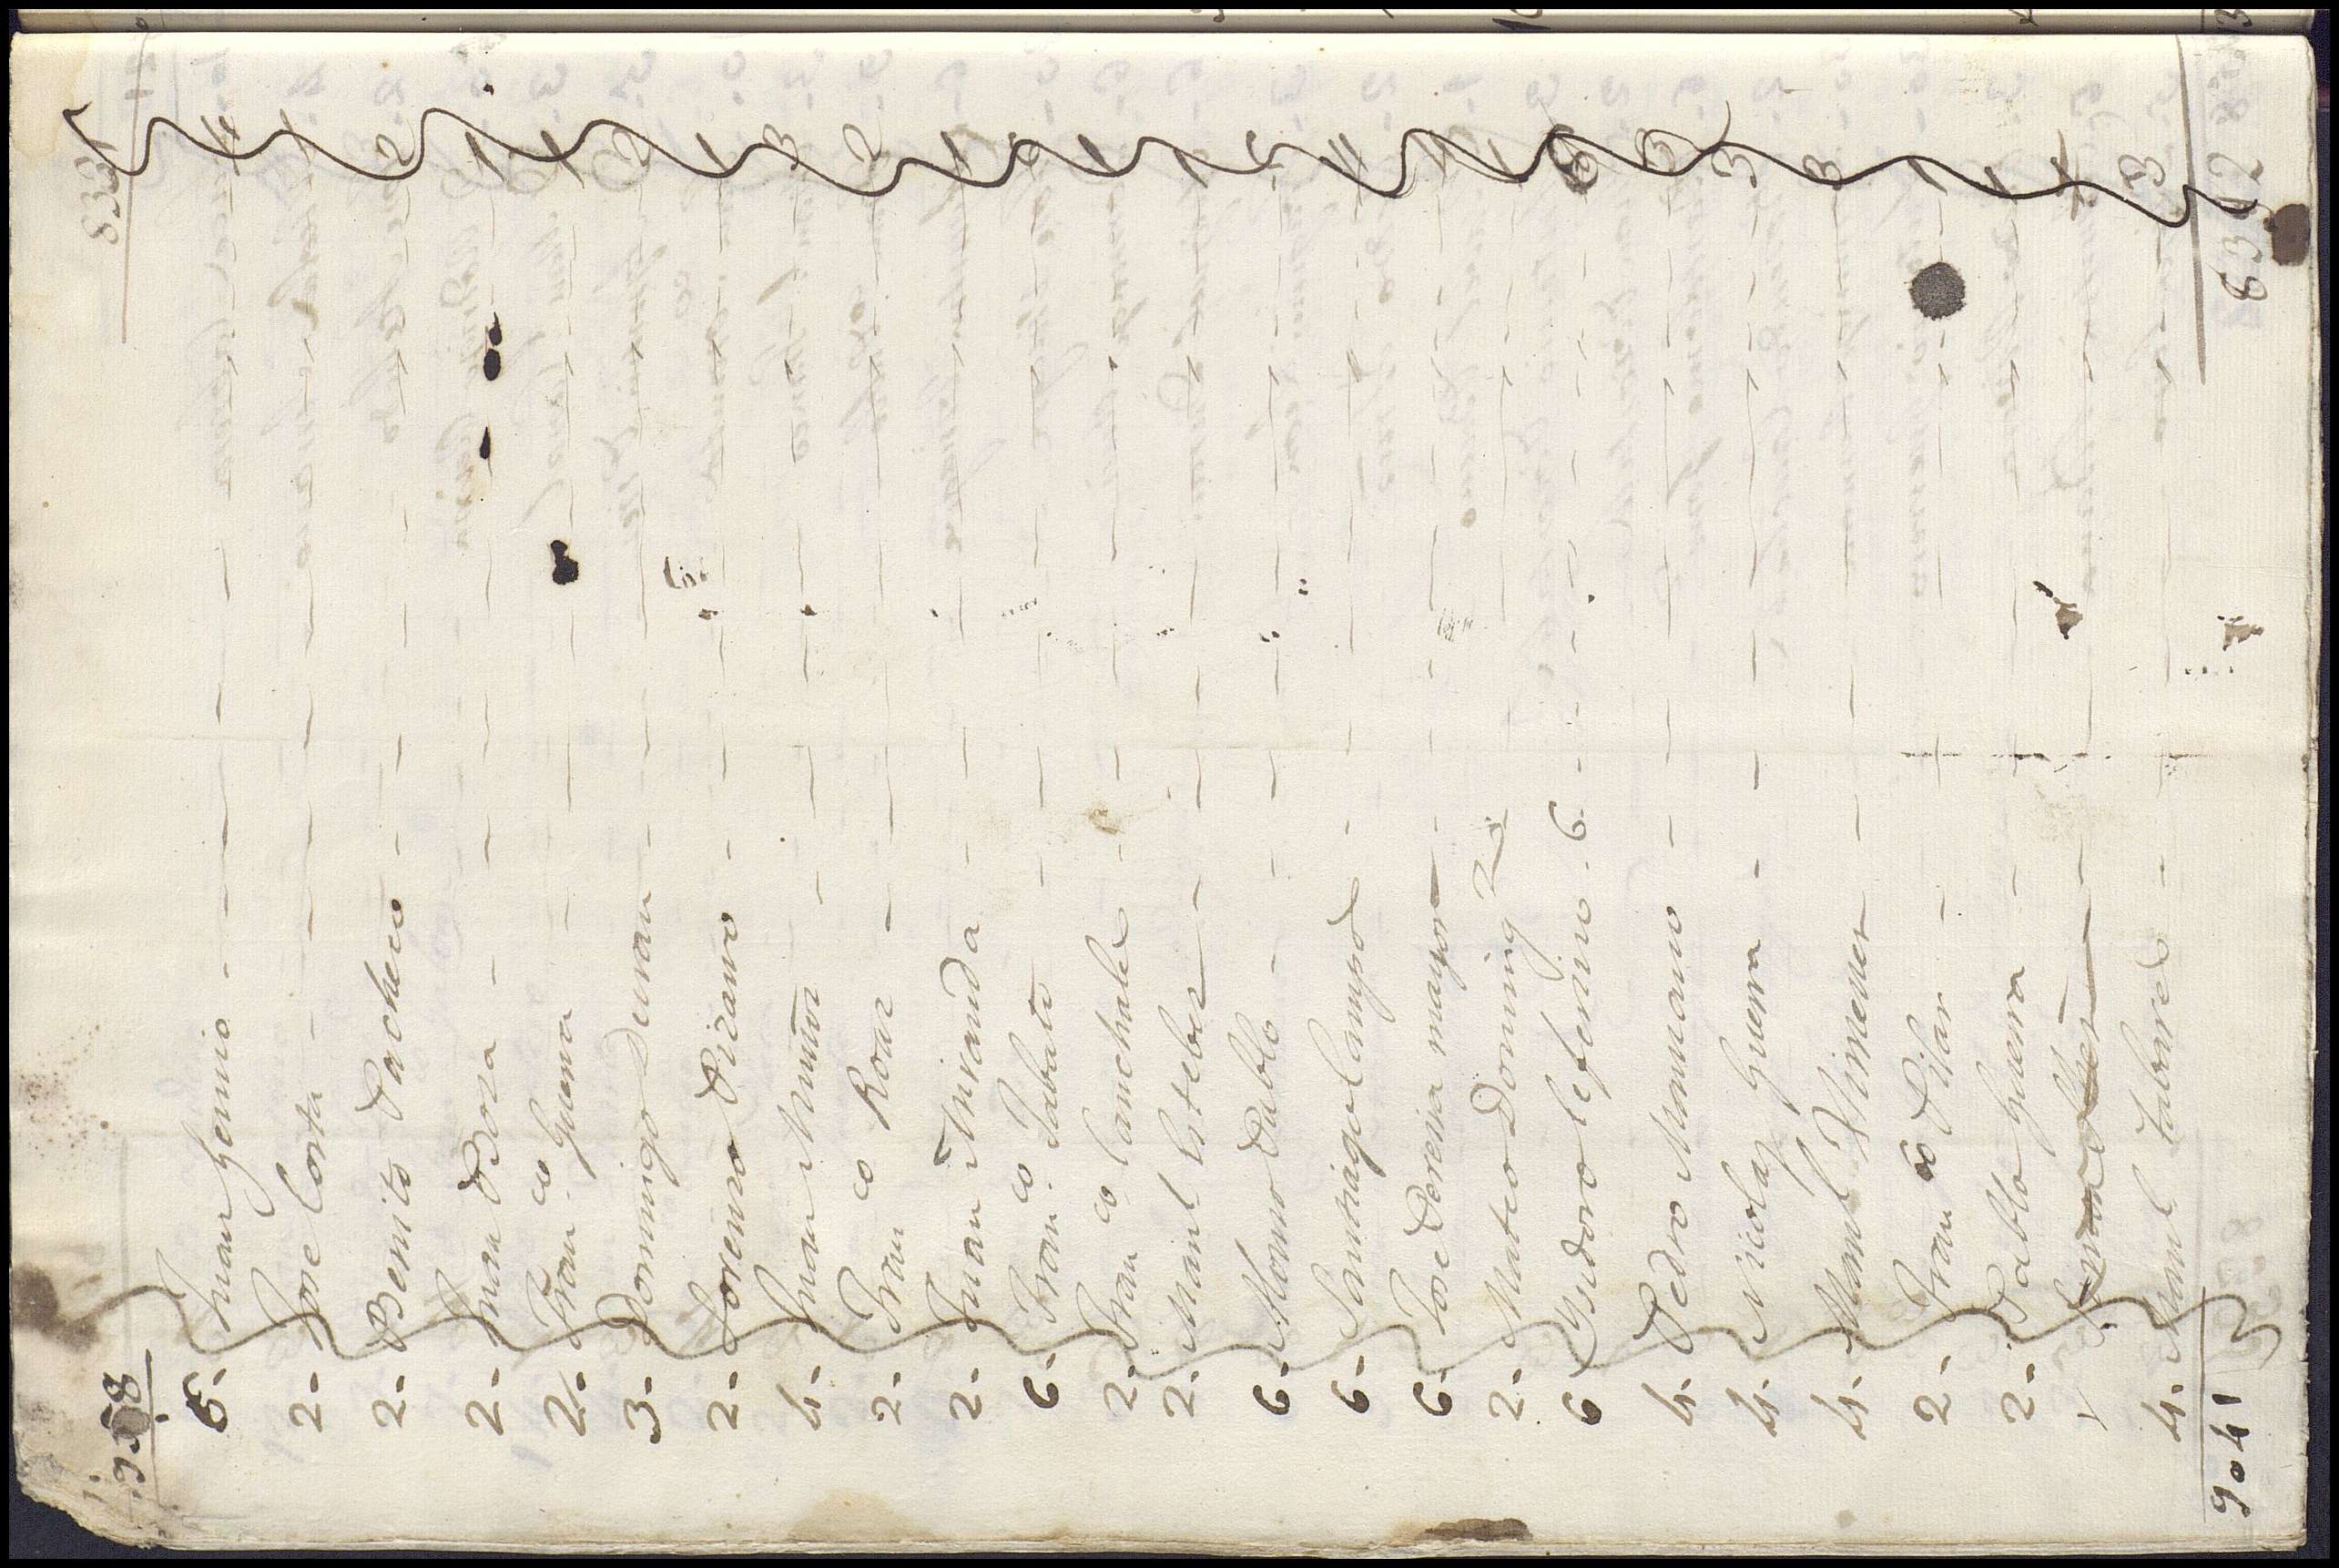 9558 833
6 - Juan Genio
2 - Jose Costa
2 - Benito Pacheco 2
2 - Juan Boza 1
2 - Fran.co Guerra 1
3 - Domingo Duran 2
2 - Lorenzo Pizarro 1
4 - Juan Muñoz 3
2 - Fran co Roar 2
2 - Juan Miranda 1
6 - Fran.co Sabato 6
2 - Fran co Canchales 1
2 - Manl Esteber 1
6 - Alonso Pablo 5
6 - Santiago Campos 4
6 - Jose Pereira mayor 4
2 - Mateo Doming 2 1
6 Ysidoro Ceferino . 6 - 6
4 - Pedro Manzano 3
4 - Nicolas Guerra 3
4 - Manl Ximenez 3
2 - Fran co Pilar 1
2 - Pablo Guerra 1
4 - Manl Tabares 3
9041 8392